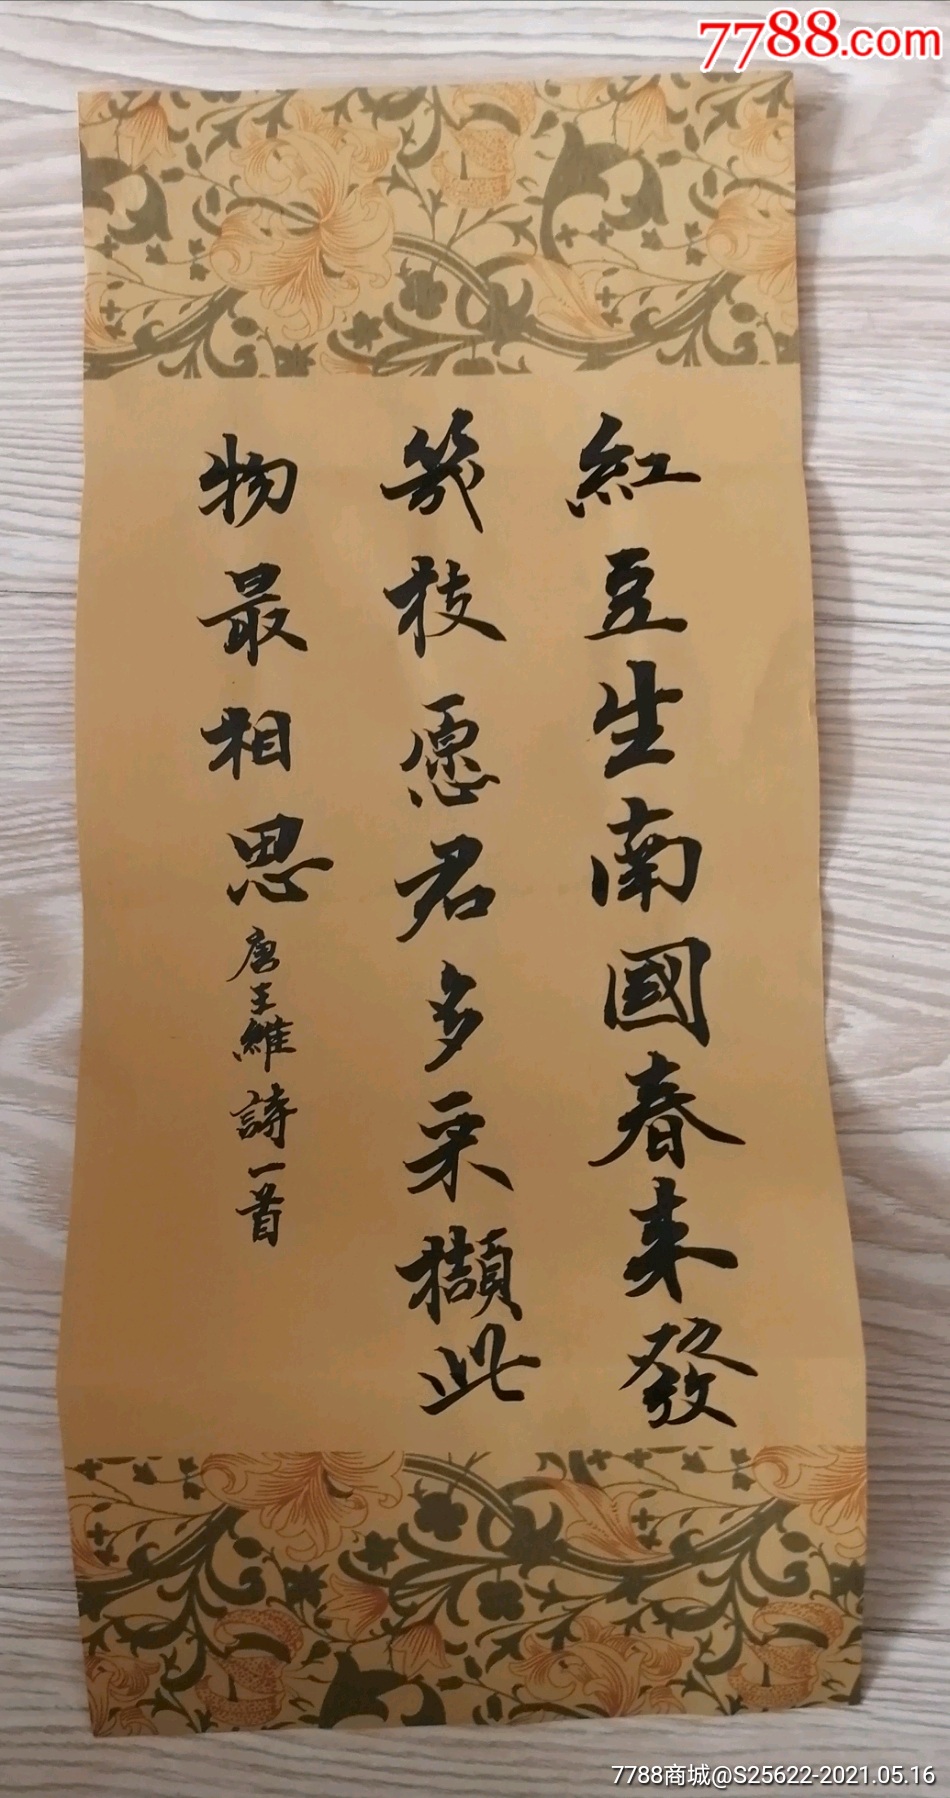 7788.com
紅豆生南國春来發
幾枝愿君多采擷此
物最相思
唐王維詩一首
7788商城@S25622-2021.05.16